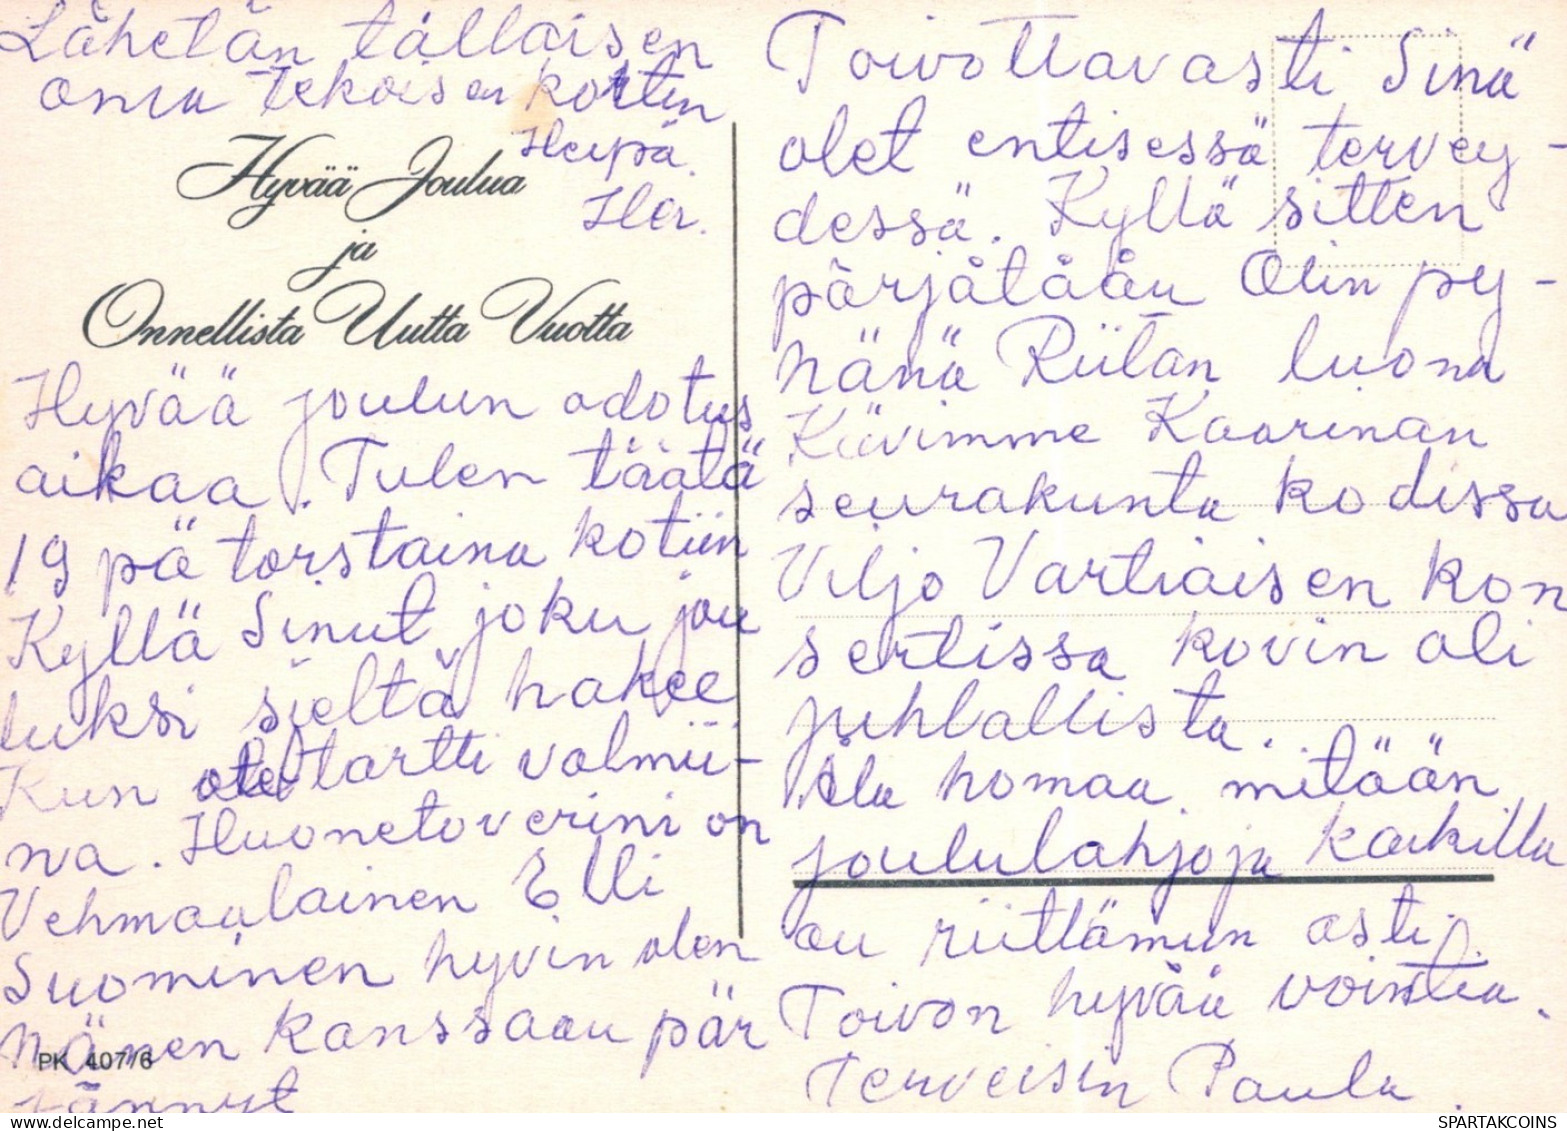 Lähetän tällaisen
oma tekoisen kortin
Heipä.
Hyvää Joulua
ja
Onnellista Uutta Vuotta
Hyvää joulun odotus
aikaa. Tulen täätä
19 pä torstaina kotiin
Kyllä Sinut joku jou
luksi sieltä hakee
Kun olet tortti valmii-
na. Huonetoverini on
Vehmaalainen Elli
Suominen hyvin olen
hänen kanssaan pär
jännyt
PK 407/6
Toivottavasti Sinä
olet entisessä tervey-
dessä. Kyllä sitten
pärjätään Olin py-
hänä Riitan luona
Kävimme Kaarinan
seurakunta kodissa
Viljo Vartiaisen kon
sertissa kovin oli
juhlallista.
Älä homaa mitään
joululahjoja kaikilla
on riittämiin asti.
Toivon hyvää vointia.
Terveisin Paula.
SPARTAKCOINS
www.delcampe.net